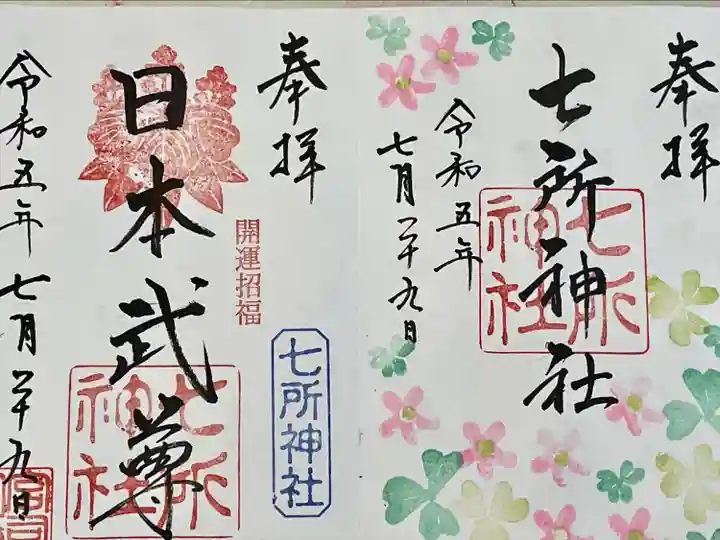 奉拝
七所神社
七所神社
令和五年
七月二十九日
奉拝
開運招福
七所神社
日本武尊
七所神社
令和五年七月二十九日